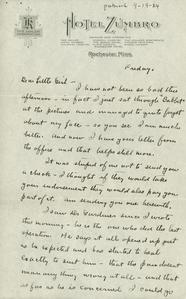 patrick 9-19-24
HOTEL ZUMBRO
Rochester, Minn.
Friday.
Dear Little Girl -
I have not been so bad this
afternoon - in fact I just sat through
at the pictures and managed to quite forget
about my face - so you see I am much
better. And now I have your letter from
the office and that helps still more.
It was stupid of me not to send you
a check - I thought if they would take
your endorsement they would also pay you
part of it. Am sending you one herewith.
I saw Dr. since I wrote
this morning - he is the one who did the last
operation. He says it all opened up just
as he expected and has started to heal
exactly to suit him - that the
wrong at all - and that
as far as he is concerned I could go